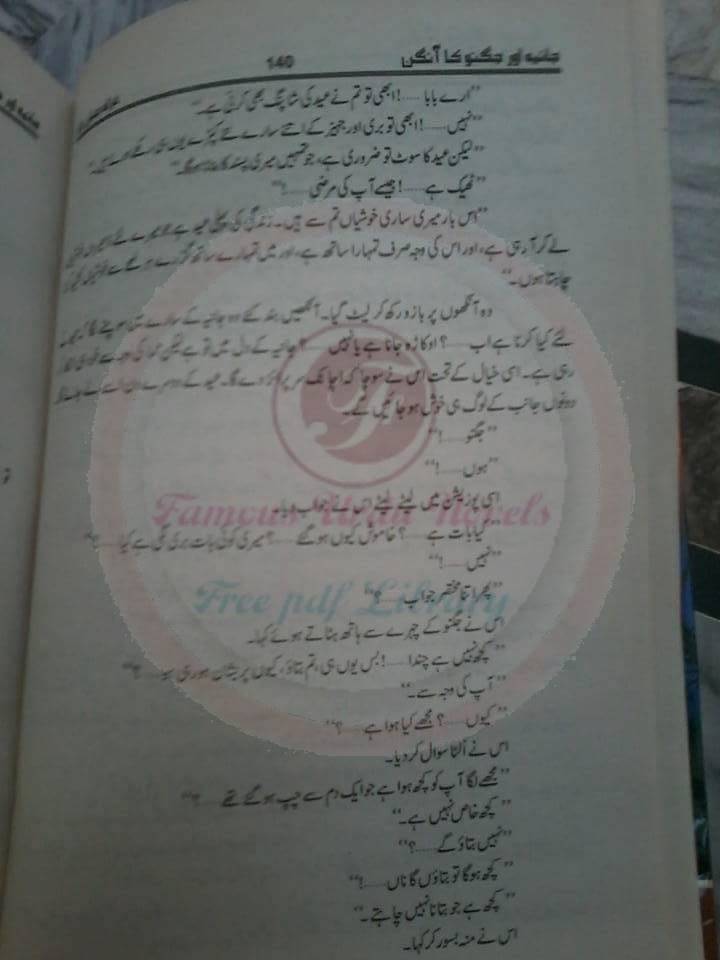 جانیہ اور جگنو کا آنگن
140
”ارے بابا……! ابھی تو تم نے عید کی شاپنگ بھی کرنی ہے۔“
”نہیں……! ابھی تو بری اور جہیز کے اتنے سارے نئے کپڑے یوں ہی رکھے ہوئے ہیں۔“
”لیکن عید کا سوٹ تو ضروری ہے، جو تمہیں میری پسند کا
”ٹھیک ہے……! جیسے آپ کی مرضی……!“
”اس بار میری ساری خوشیاں تم سے ہیں۔ زندگی کی پہلی عید ہے جو میرے لئے
لے کر آ رہی ہے، اور اس کی وجہ صرف تمہارا ساتھ ہے، اور میں تمہارے ساتھ گزرے ہر لمحے سے خوشیاں
چاہتا ہوں۔“
وہ آنکھوں پر بازو رکھ کر لیٹ گیا۔ آنکھیں بند کئے وہ جانیہ کے بارے میں سوچنے لگا کہ
لئے کیا کرنا ہے اب……؟ اوکاڑہ جانا ہے یا نہیں……؟ جانیہ کے دل میں تو ہے لیکن کی وجہ سے
رہی ہے۔ اسی خیال کے تحت اس نے سوچا کہ اچانک سرپرائز دے گا۔ عید کے دوسرے دن اسے لے جائے گا
دونوں جانب کے لوگ ہی خوش ہو جائیں گے۔
”جگنو……!“
”ہوں……!“
اسی پوزیشن میں لیٹے لیٹے اس نے جواب دیا۔
”کیا بات ہے……؟ خاموش کیوں ہو گئے……؟ میری کوئی بات بری لگی ہے کیا……؟“
”نہیں……!“
”پھر اتنا مختصر جواب……؟“
اس نے جگنو کے چہرے سے ہاتھ ہٹاتے ہوئے کہا۔
”کچھ نہیں ہے چندا……! بس یوں ہی، تم بتاؤ، کیوں پریشان ہو رہی ہو……؟“
”آپ کی وجہ سے۔“
”کیوں……؟ مجھے کیا ہوا ہے……؟“
اس نے اُلٹا سوال کر دیا۔
”مجھے لگا آپ کو کچھ ہوا ہے جو ایک دم سے چپ ہو گئے تھے……؟“
”کچھ خاص نہیں ہے۔“
”نہیں بتاؤ گے……؟“
”کچھ ہو گا تو بتاؤں گا ناں……!“
”کچھ ہے جو بتانا نہیں چاہتے۔“
اس نے منہ بسور کر کہا۔
Famous Urdu Novels
Free pdf Library